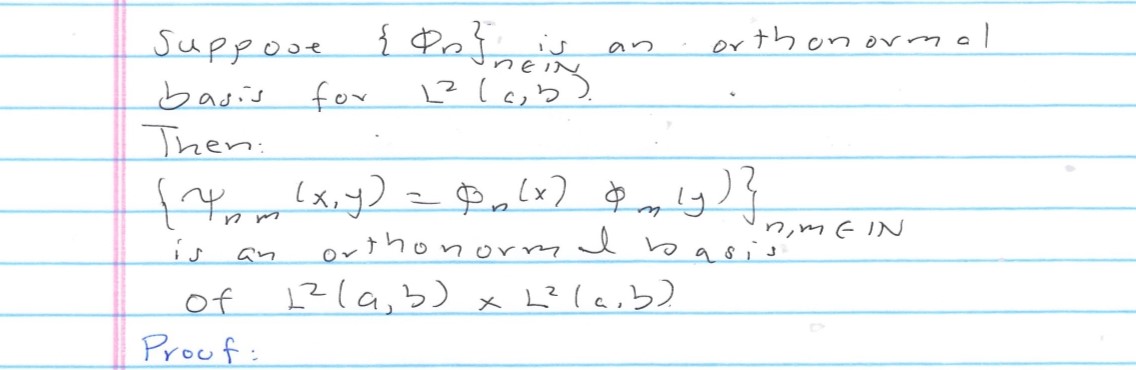 Suppose {Φn}n∈ℕ is an orthonormal
basis for L²(a,b).
Then:
{Ψnm(x,y) = Φn(x) Φm(y)}n,m∈ℕ
is an orthonormal basis
of L²(a,b) × L²(a,b)
Proof: